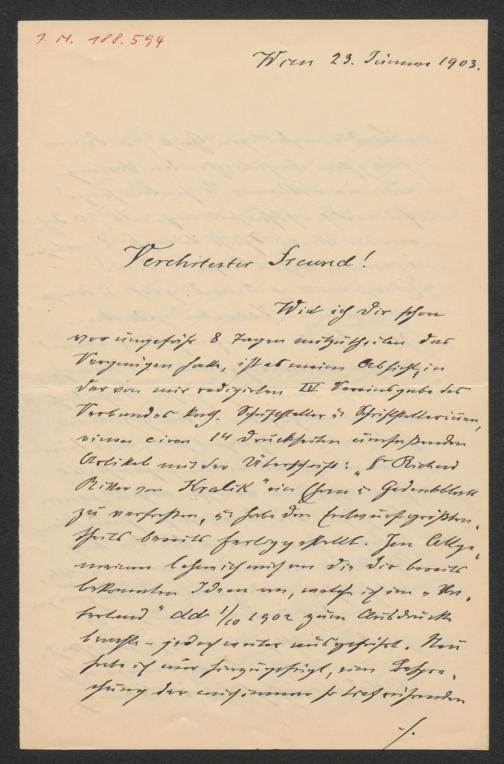 J. N. 188.594
Wien 23. Jänner 1903.
Verehrtester Freund!
Wie ich Dir schon
vor ungefähr 8 Tagen mitzutheilen das
Vergnügen hatte, ist es meine Absicht, in
der von mir redigirten IV. Vereinsgabe des
Verbandes kath. Schriftsteller u. Schriftstellerinnen,
einen circa 14 Druckseiten umfassenden
Artikel mit der Überschrift: „Dr Richard
Ritter von Kralik" ein Ehren u. Gedenkblatt
zu verfassen, u. habe den Entwurf größten-
theils bereits fertiggestellt. Im Allge-
meinen lehne ich mich an die Dir bereits
bekannten Ideen an, welche ich im „Va-
terland" dd 1/10 1902 zum Ausdrucke
brachte – jedoch weiter ausgeführt. Neu
habe ich nur hinzugefügt, eine Bespre-
chung der mich immer so tief rührenden
./.